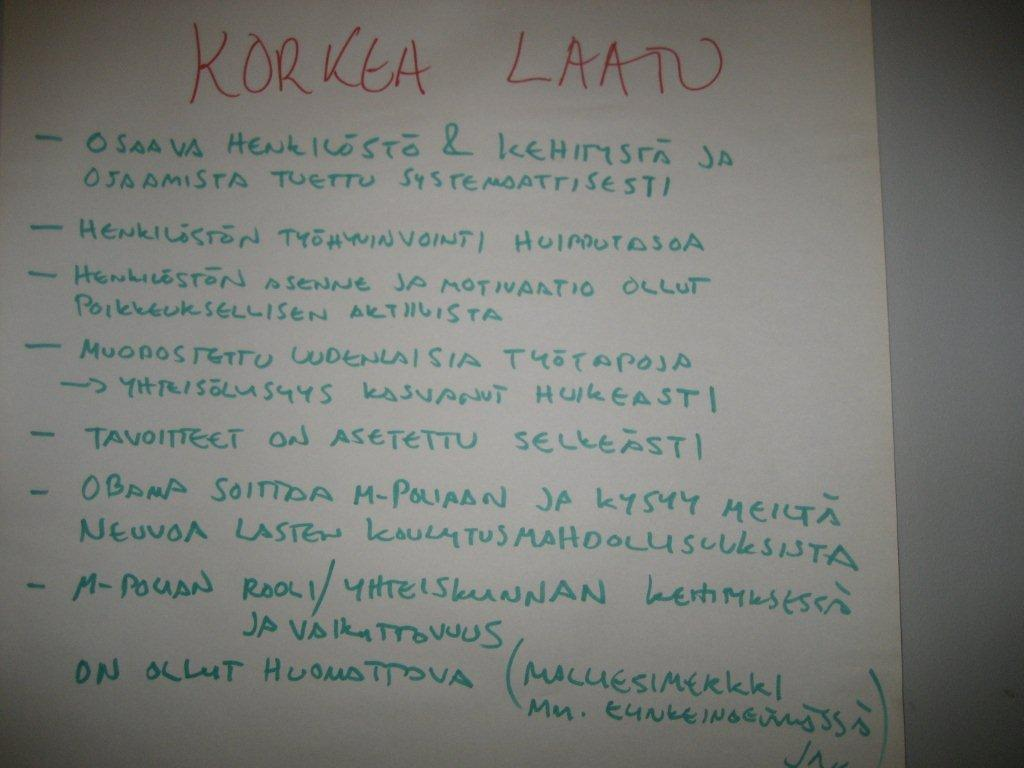 KORKEA LAATU
- OSAAVA HENKILÖSTÖ & KEHITYSTÄ JA
OSAAMISTA TUETTU SYSTEMAATTISESTI
- HENKILÖSTÖN TYÖHYVINVOINTI HUIPPUTASOA
- HENKILÖSTÖN ASENNE JA MOTIVAATIO OLLUT
POIKKEUKSELLISEN AKTIIVISTA
- MUODOSTETTU UUDENLAISIA TYÖTAPOJA
-> YHTEISÖLLISYYS KASVANUT HUIKEASTI
- TAVOITTEET ON ASETETTU SELKEÄSTI
- OBAMA SOITTAA M-POLIAAN JA KYSYY MEILTÄ
NEUVOA LASTEN KOULUTUSMAHDOLLISUUKSISTA
- M-POLIAN ROOLI/YHTEISKUNNAN KEHITYKSESSÄ
JA VAIKUTTAVUUS
ON OLLUT HUOMATTAVA (MALLIESIMERKKI
MM. ELINKEINOELÄMÄSSÄ)